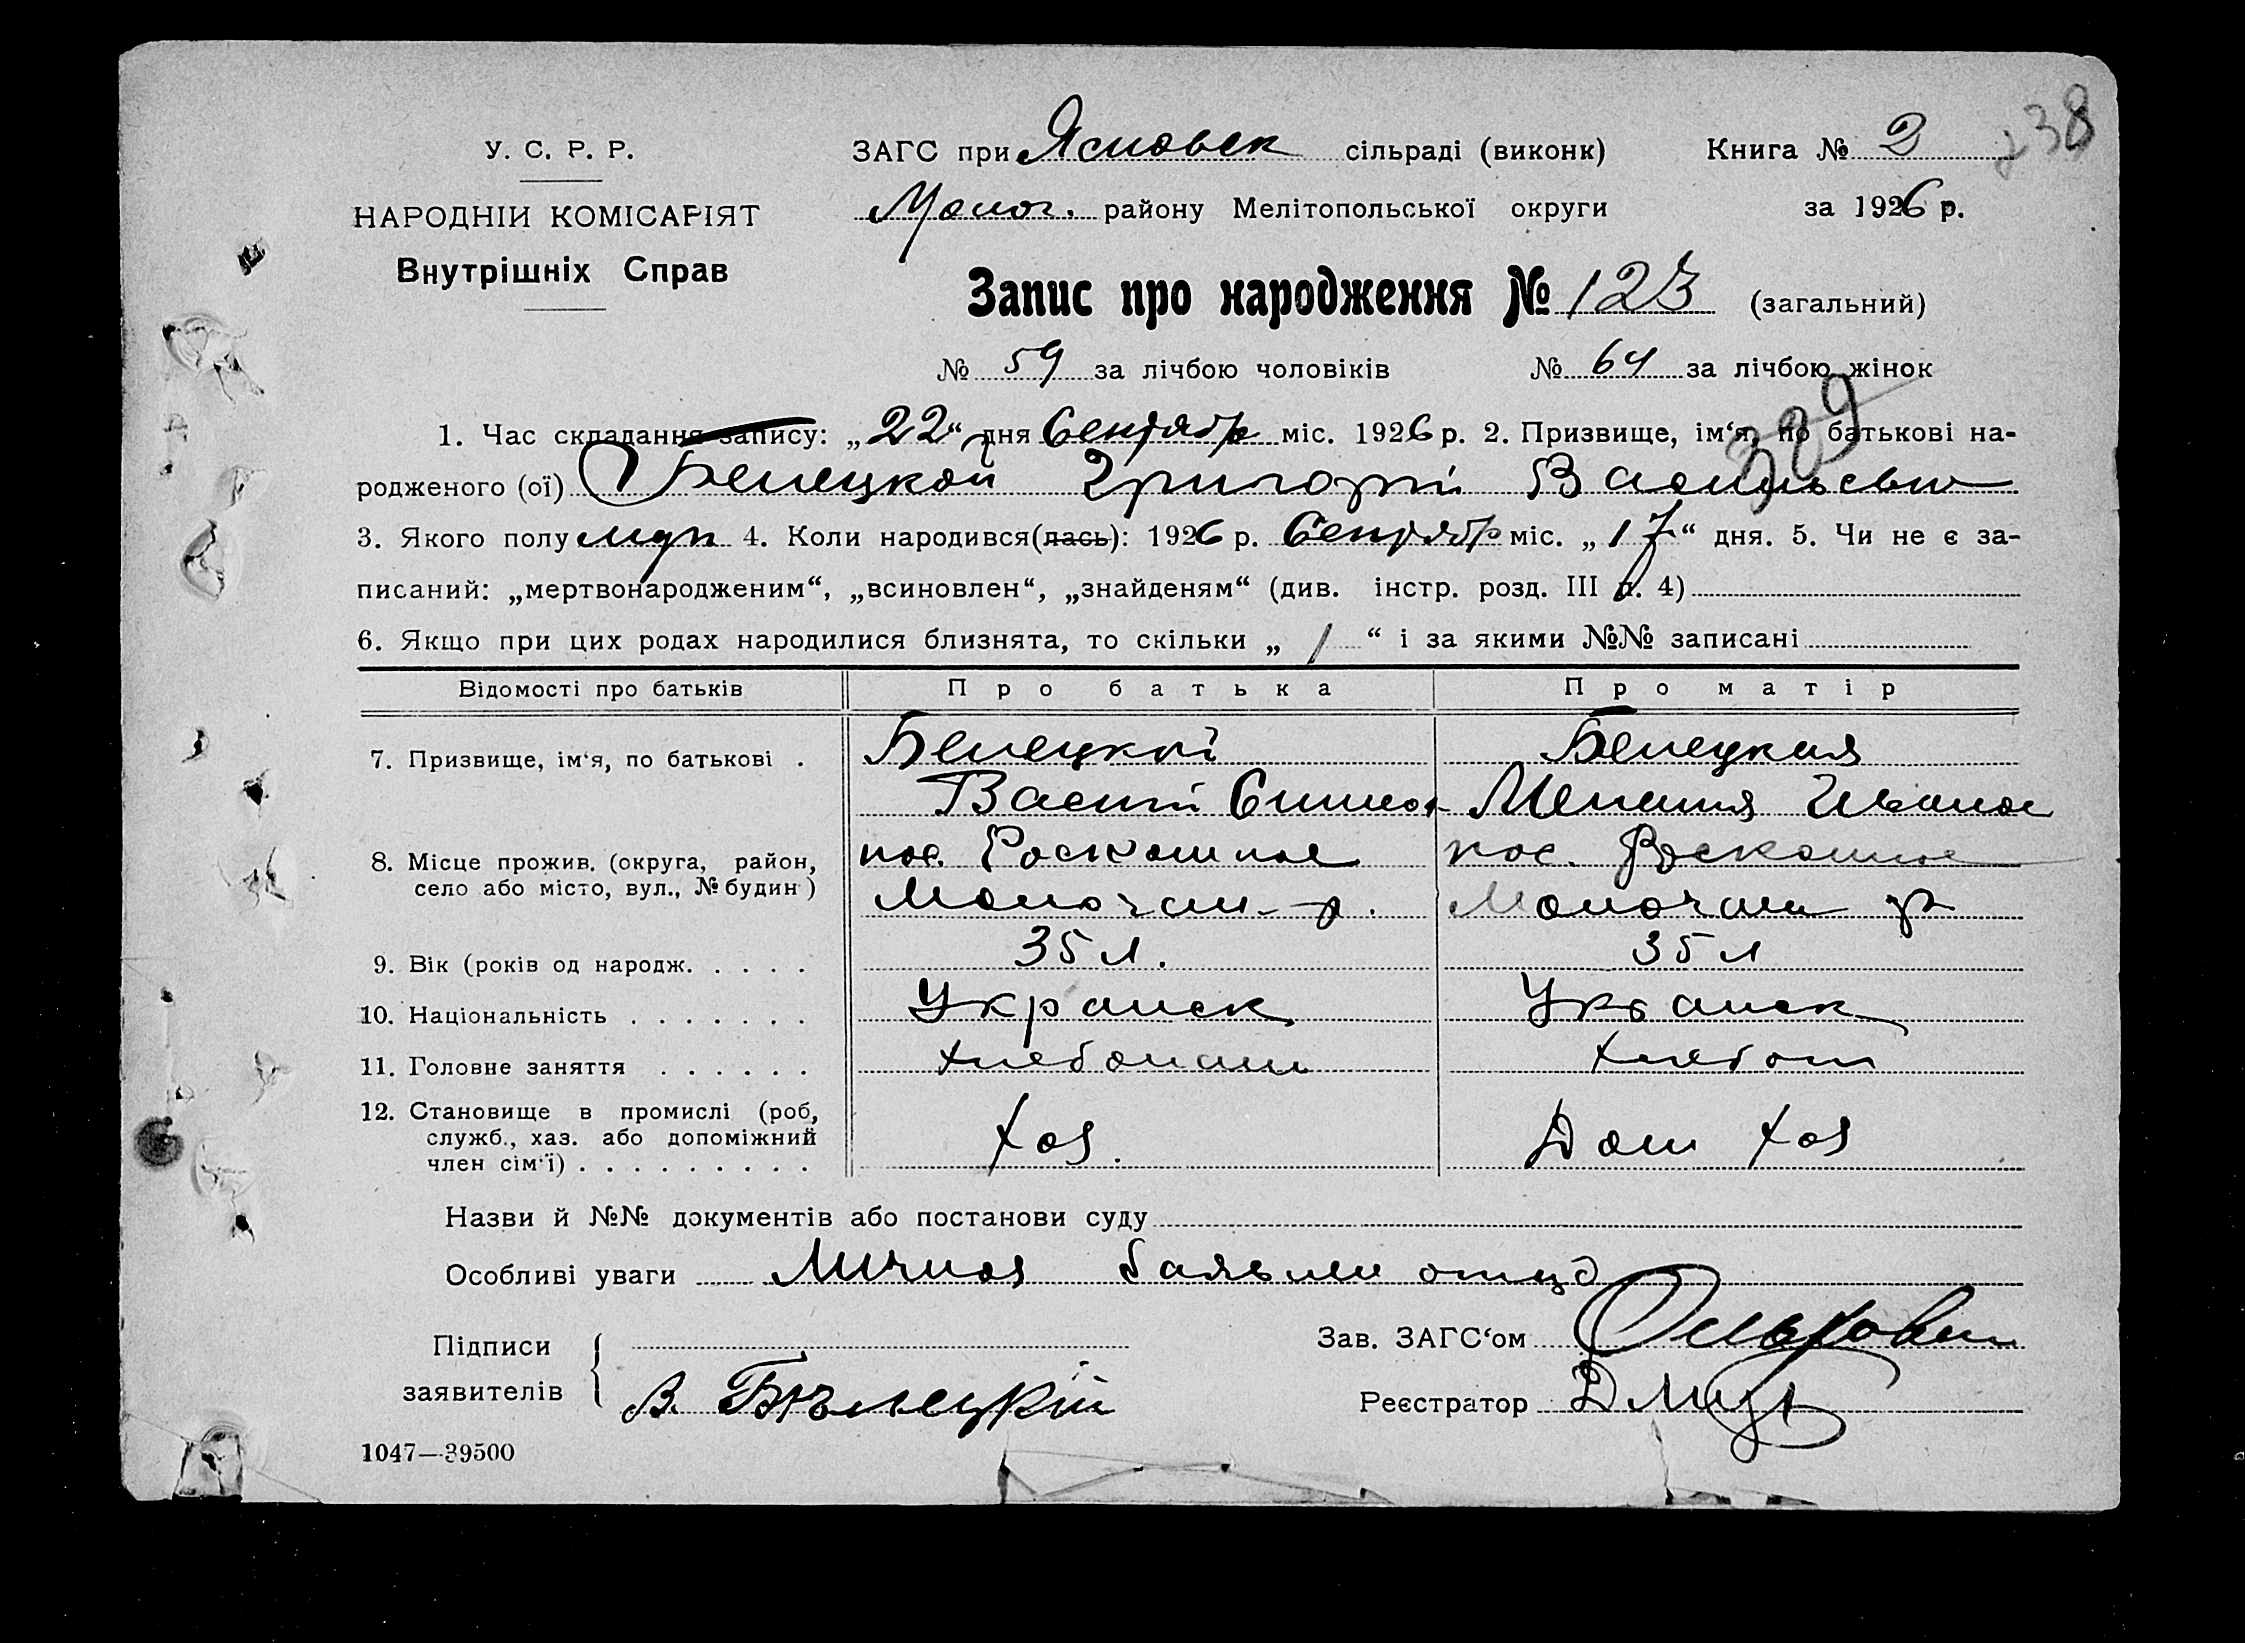 238
У. С. Р. Р.
НАРОДНІЙ КОМІСАРІЯТ
Внутрішніх Справ
ЗАГС при Ясновск сільраді (виконк) Книга № 2
Молоч. району Мелітопольської округи за 1926 р.
Запис про народження № 123 (загальний)
№ 59 за лічбою чоловіків № 64 за лічбою жінок
329
1. Час складання запису: „22“ дня Сентябр міс. 1926 р. 2. Призвище, ім‘я, по батькові на-
родженого (ої) Белецкой Григорій Васильевич
3. Якого полу муж 4. Коли народився(лась): 1926 р. Сентябр міс. „17“ дня. 5. Чи не є за-
писаний: „мертвонародженим“, „всиновлен“, „знайденям“ (див. інстр. розд. III п. 4)
6. Якщо при цих родах народилися близнята, то скільки „ / “ і за якими №№ записані
Відомості про батьків Про батька Про матір
7. Призвище, ім‘я, по батькові . Белецкой Белецкая
Васил Мелания Иванов
8. Місце прожив. (округа, район, пос. Роскошное пос. Роскошное
село або місто, вул., № будин) Молочан. р. Молочан р
9. Вік (років од народж. . . . . 35 л. 35 л
10. Національність . . . . . . . Украинск Украинск
11. Головне заняття . . . . . . хлебопаш хлебоп
12. Становище в промислі (роб,
служб., хаз. або допоміжний Хоз. Дом Хоз
член сім‘ї) . . . . . . . . .
Назви й №№ документів або постанови суду
Особливі уваги Личноя отца
Підписи Зав. ЗАГС‘ом
заявителів В. Бѣлецкій Реєстратор
1047—39500